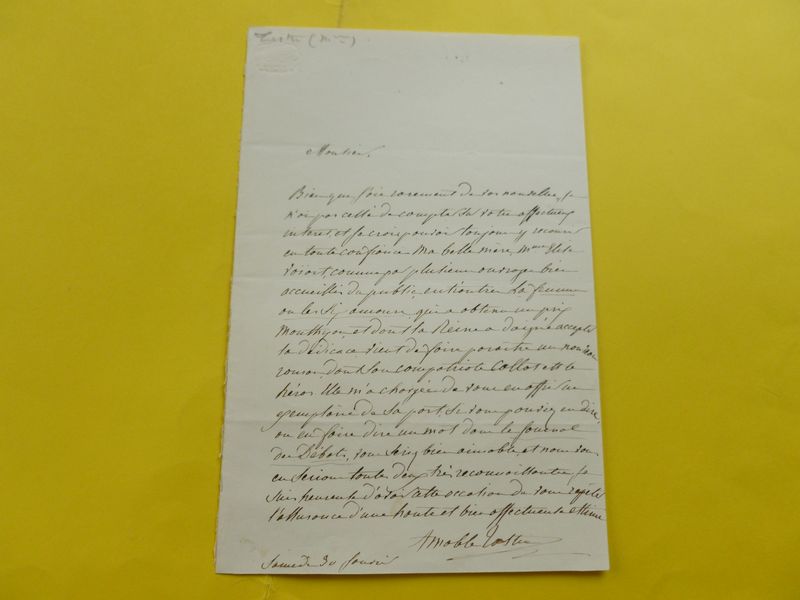 Tastu (Mme)
Monsieur,
Bien que j'aie rarement de vos nouvelles, je
n'ai pas cessé de compter sur votre affectueux
interet, et je crois pouvoir toujours y recourir
en toute confiance. Ma belle mère, Mme Elise
Voïart, connue par plusieurs ouvrages bien
accueillis du public, entr'autres La femme
ou les Six amours, qui a obtenu un prix
Monthyon, et dont la Reine a daigné accepter
la dédicace vient de faire paraître un nouveau
roman, dont son compatriote Callot est le
héros. Elle m'a chargée de vous en offrir un
exemplaire de sa part, si vous pouviez en dire,
ou en faire dire un mot dans le Journal
des Débats, vous seriez bien aimable et nous vous
en serions toutes deux très reconnaissantes, je
suis heureuse d'avoir cette occasion de vous répéter
l'assurance d'une haute et bien affectueuse estime
Amable Tastu
Samedi 30 Janvier